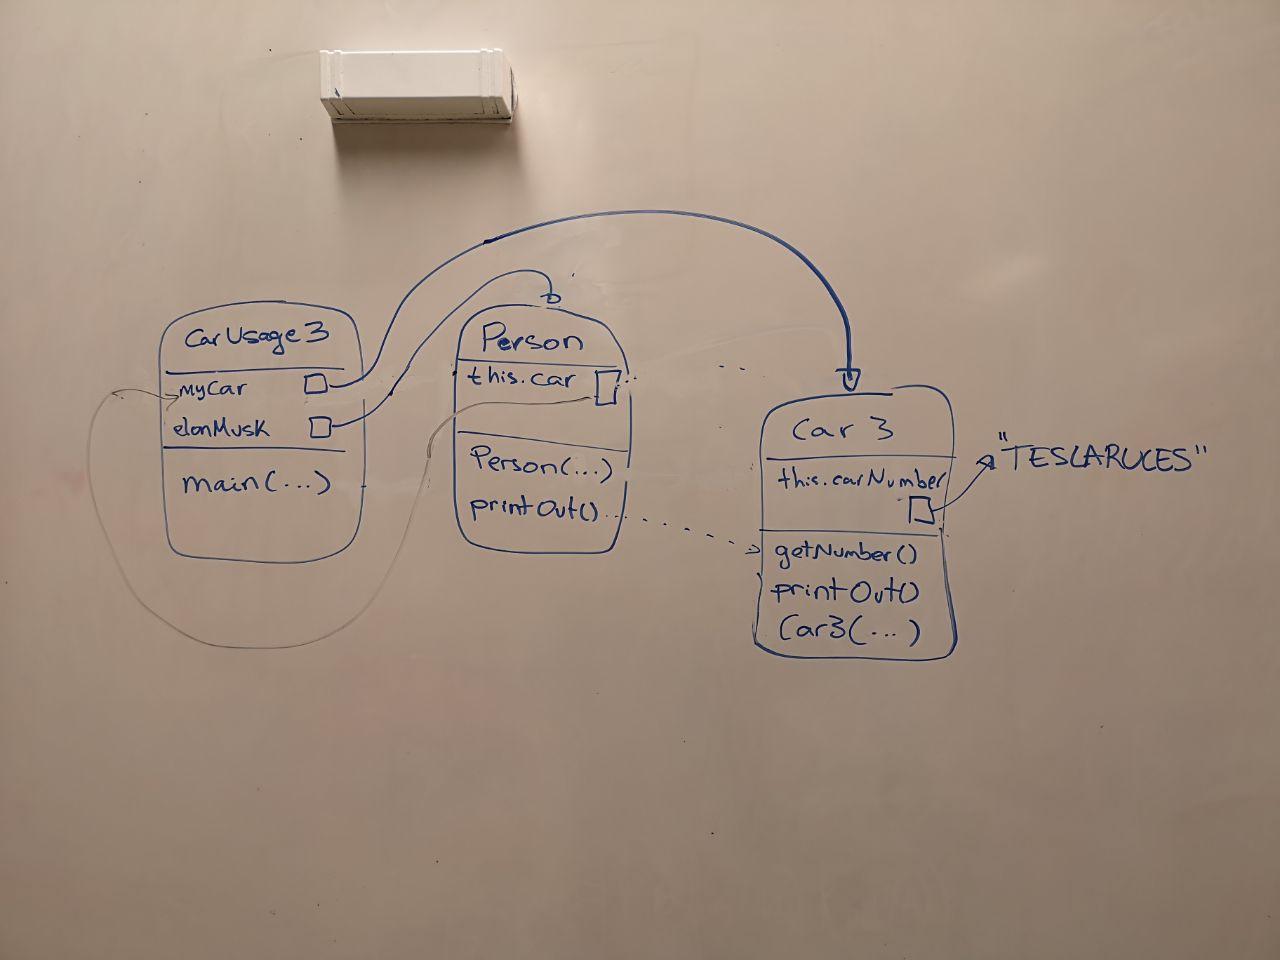 CarUsage3
myCar
elonMusk
main(...)
Person
this.car
Person(...)
printOut()
Car 3
this.carNumber
"TESLARULES"
getNumber()
printOut()
Car3(...)